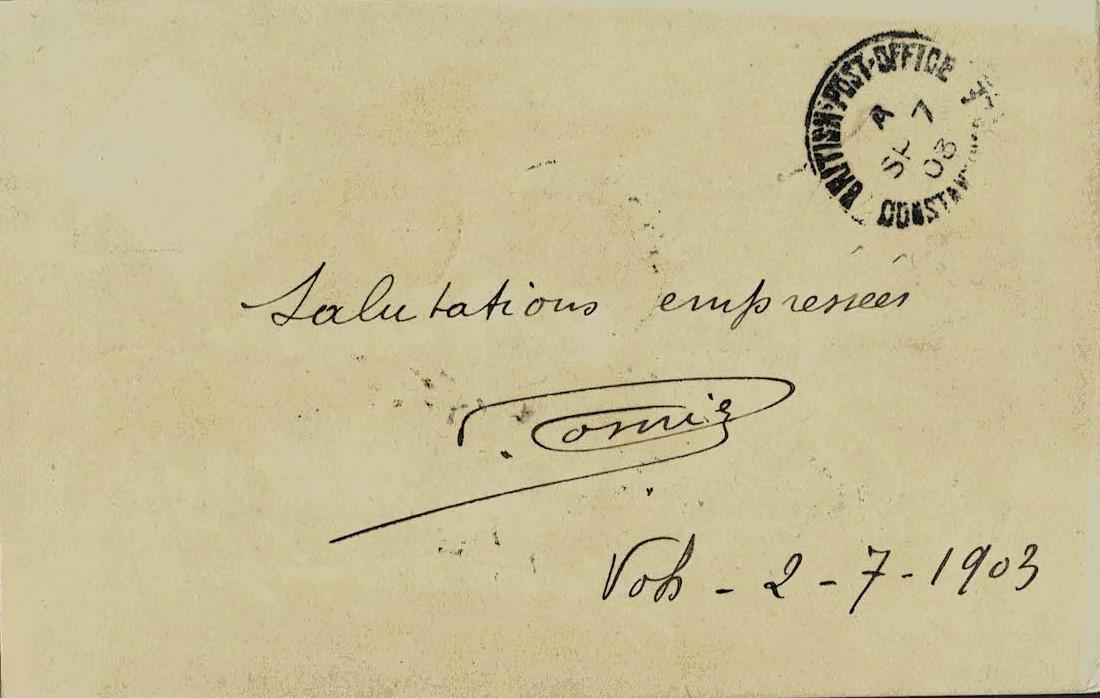 BRITISH·POST·OFFICE
A
SP 7
03
CONSTAN
Salutations empressées
Voh - 2 - 7 - 1903